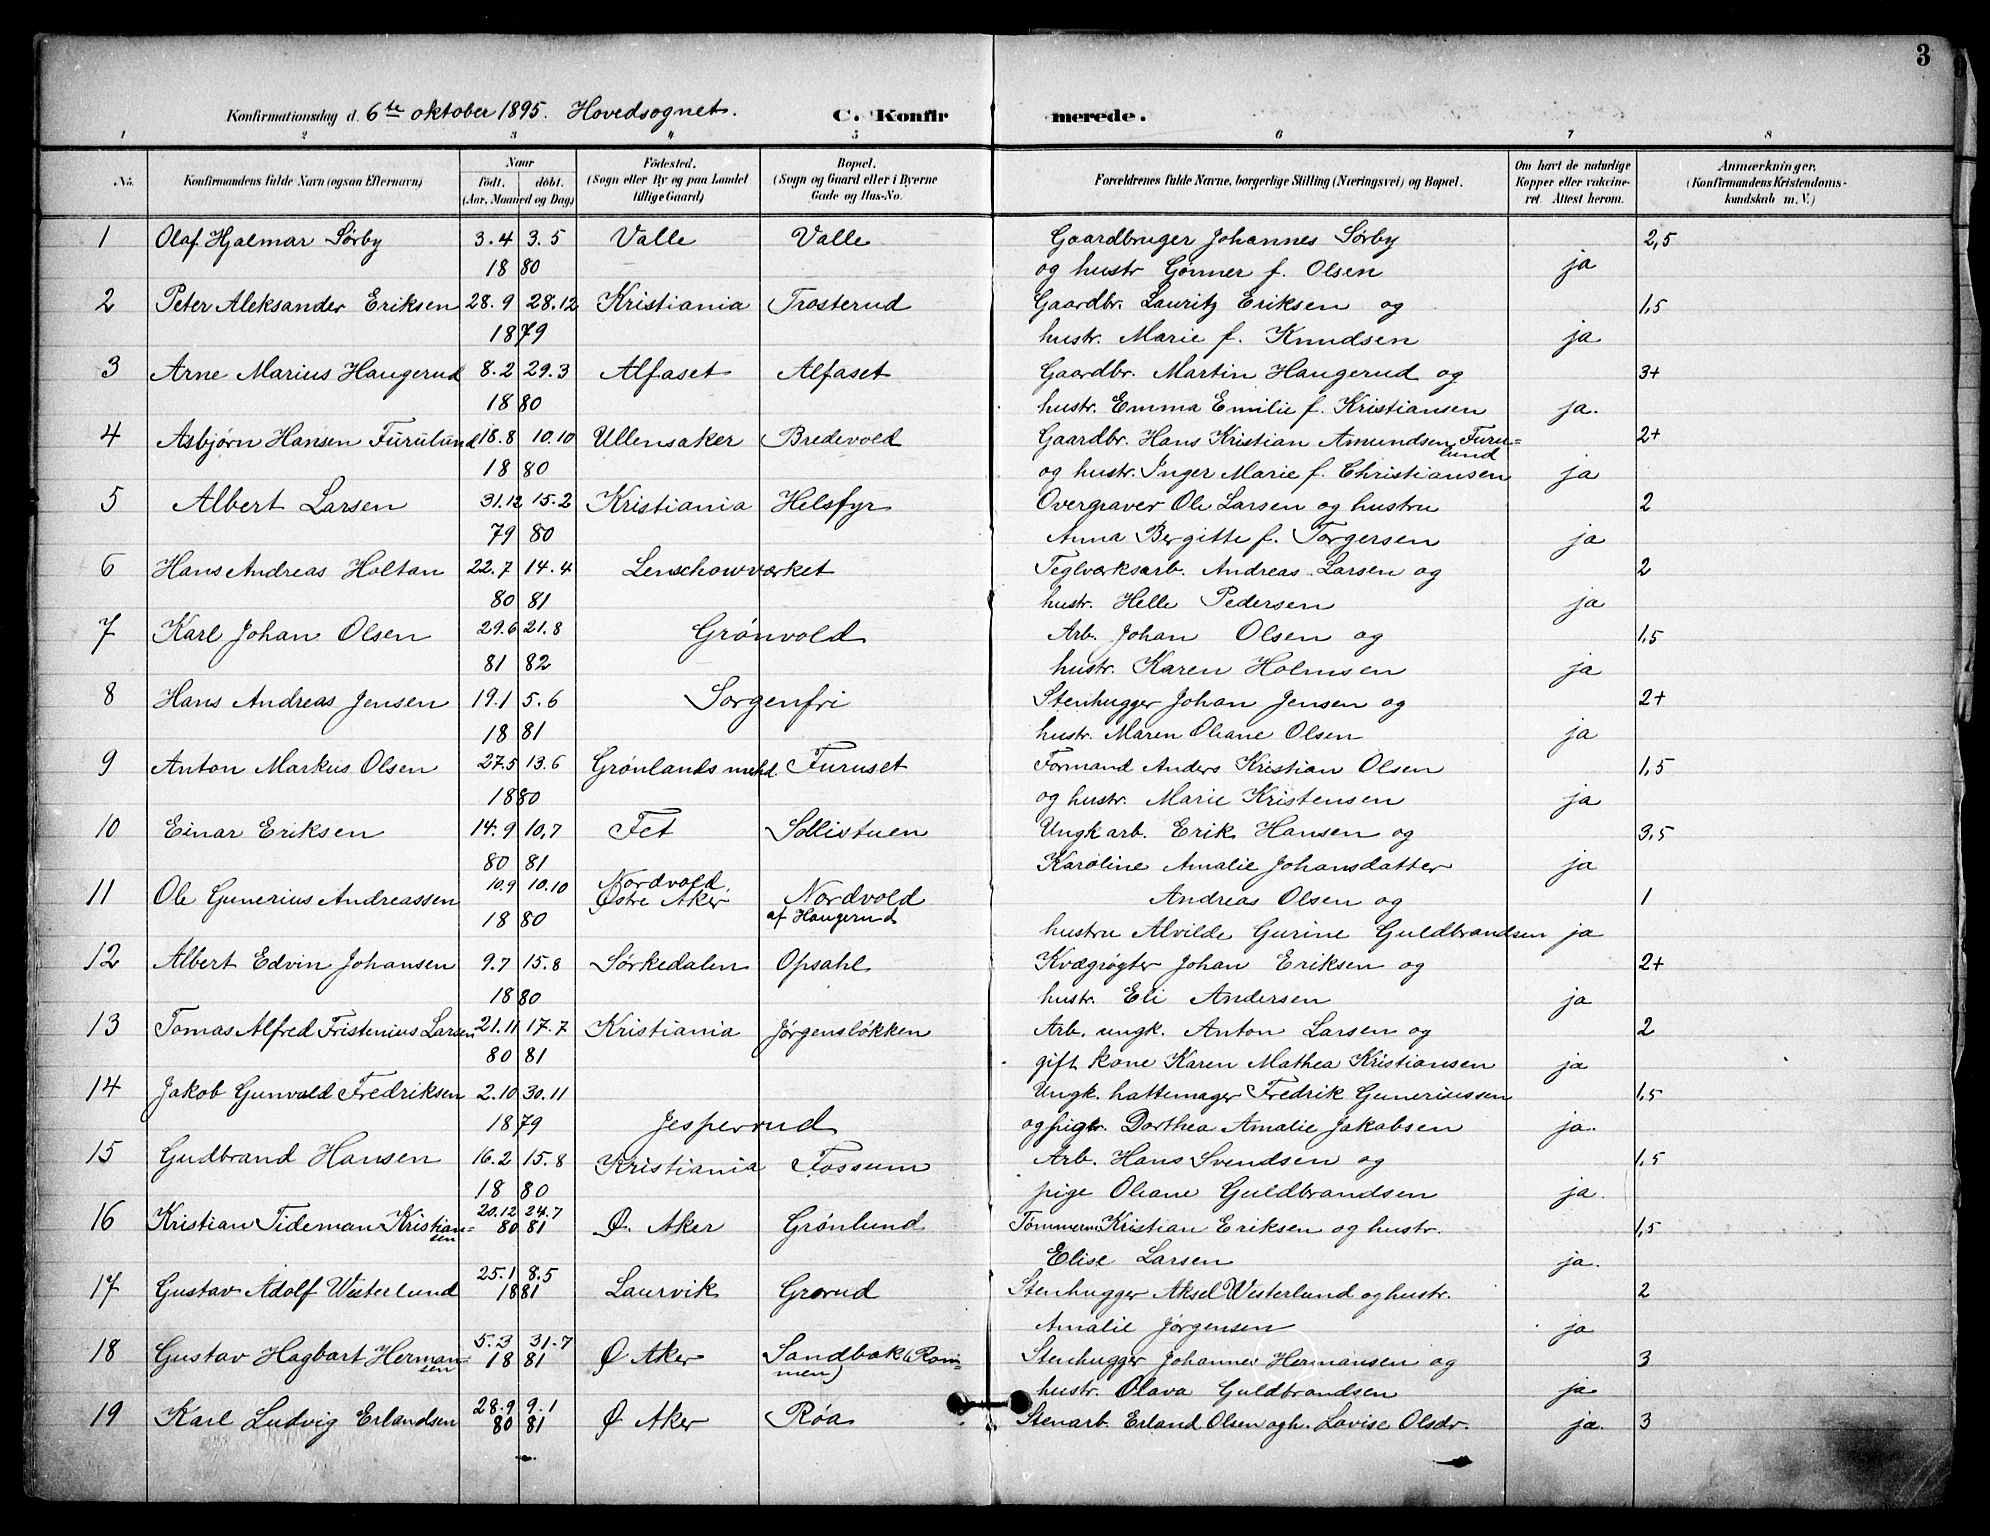 3
Konfirmationsdag d. 6te oktober 1895. Hovedsognet. C. Konfirmerede.
1 2 3 4 5 6 7 8
No. Konfirmandens fulde Navn (ogsaa Efternavn) Naar født. døbt. (Aar, Maaned og Dag) Fødested. (Sogn eller By og paa Landet tillige Gaard) Bopæl. (Sogn og Gaard eller i Byerne Gade og Hus-No. Forældrenes fulde Navne, borgerlige Stilling (Næringsvei) og Bopæl. Om havt de naturlige Kopper eller vakcineret. Attest herom. Anmærkninger. (Konfirmandens Kristendomskundskab m. V.)
1 Olaf Hjalmar Sørby 3.4 3.5 Valle Valle Gaardbruger Johannes Sørby 2,5
18 80 og hustr Gunner f. Olsen ja
2 Peter Aleksander Eriksen 28.9 28.12 Kristiania Trosterud Gaardbr. Lauritz Eriksen og 1,5
18 79 hustr. Marie f. Knudsen ja
3 Arne Marius Haugerud 8.2 29.3 Alfaset Alfaset Gaardbr. Martin Haugerud og 3+
18 80 hustr. Emma Emilie f. Kristiansen ja.
4 Asbjørn Hansen Furulund 18.8 10.10 Ullensaker Bredevold Gaardbr. Hans Kristian Amundsen Furu=lund 2+
18 80 og hustr. Inger Marie f. Christiansen ja
5 Albert Larsen 31.12 15.2 Kristiania Helsfyr Overgraver Ole Larsen og hustru 2
79 80 Anna Bergitte f. Torgersen ja
6 Hans Andreas Holtan 22.7 14.4 Lenschowværket Teglværksarb. Andreas Larsen og 2
80 81 hustr. Helle Pedersen ja
7 Karl Johan Olsen 29.6 21.8 Grønvold Arb. Johan Olsen og 1,5
81 82 hustr. Karen Holmsen ja
8 Hans Andreas Jensen 19.1 5.6 Sorgenfri Stenhugger Johan Jensen og 2+
18 81 hustr. Maren Oliane Olsen ja
9 Anton Markus Olsen 27.5 13.6 Grønlands mhd. Furuset Formand Anders Kristian Olsen 1,5
18 80 og hustr. Marie Kristensen ja
10 Einar Eriksen 14.9 10,7 Fet Sollistuen Ungk arb. Erik Hansen og 3,5
80 81 Karoline Amalie Johansdatter ja
11 Ole Gunerius Andreassen 10.9 10.10 Nordvold, Østre Aker Nordvold af Haugerud Andreas Olsen og 1
18 80 hustru Alvilde Gurine Guldbrandsen ja
12 Albert Edvin Johansen 9.7 15.8 Sørkedalen Opsahl Kvægrøgter Johan Eriksen og 2+
18 80 hustr. Eli Andersen ja
13 Tomas Alfred Fristenius Larsen 21.11 17.7 Kristiania Jørgensløkken Arb. ungk. Anton Larsen og 2
80 81 gift kone Karen Mathea Kristiansen ja
14 Jakob Gunvald Fredriksen 2.10 30.11 Ungk. hattemager Fredrik Guneriussen 1,5
18 79 Jesperud og pige. Dorthea Amalie Jakobsen ja.
15 Gudbrand Hansen 16.2 15.8 Kristiania Fossum Arb. Hans Svendsen og 1,5
18 80 pige Oliane Guldbrandsen ja.
16 Kristian Tideman Kristian=sen 20.12 24.7 80 81 Ø. Aker Grønlund Tømmerm. Kristian Eriksen og hustr. 1,5
Elise Larsen ja.
17 Gustav Adolf Westerlund 25.1 8.5 18 81 Laurvik Grorud Stenhugger Aksel Westerlund og hustr. 2
Amalie Jørgensen ja
18 Gustav Hagbart Herman=sen 5.3 31.7 18 81 Ø Aker Sandbak (Rommen) Stenhugger Johannes Hermansen og 3
hustr. Olava Guldbrandsen ja
19 Karl Ludvig Erlandsen 28.9 9.1 80 81 Ø Aker Røa Stenarb. Erland Olsen og h. Lovise Olsdr. ja. 3